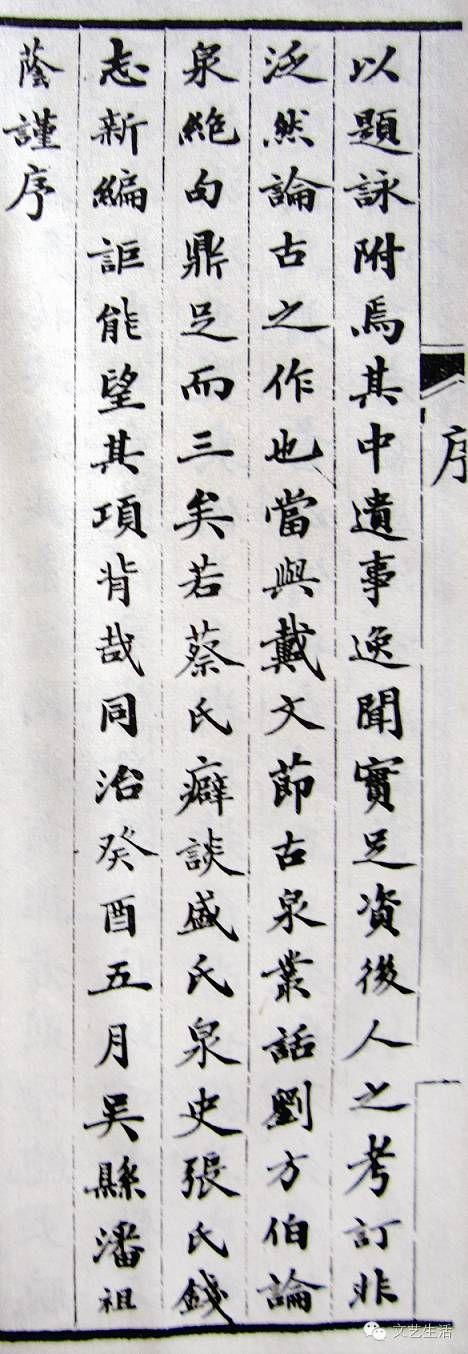 序
以題詠附焉其中遺事逸聞實足資後人之考訂非
泛然論古之作也當與戴文節古泉叢話劉方伯論
泉絶句鼎足而三矣若蔡氏癖談盛氏泉史張氏錢
志新編詎能望其項背哉同治癸酉五月吳縣潘祖
蔭謹序
文艺生活